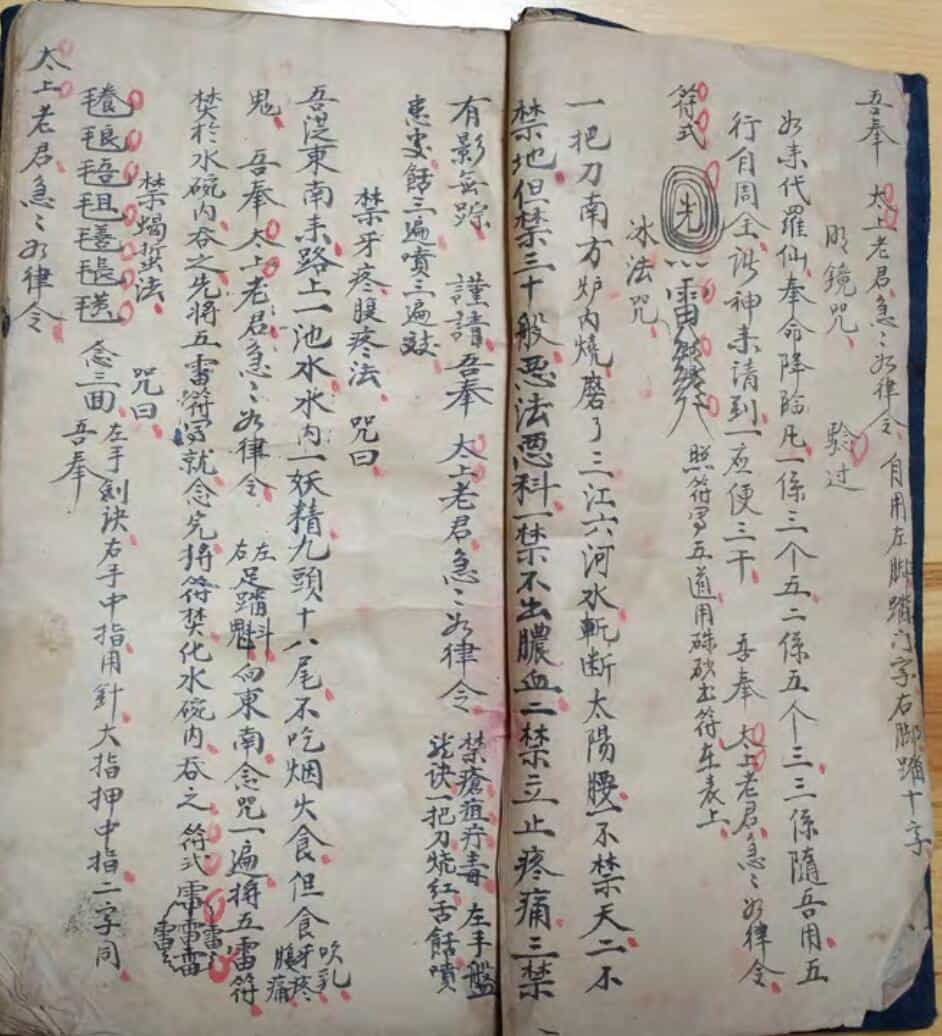 吾奉　太上老君急〻如律令　自用左脚踏门字右脚踏十字
明镜咒　驗过
如来代羅仙奉命降临凡一係三个五二係五个三三係隨吾用五
行自周全诸神来请到一应便三千　吾奉　太上老君急〻如律令
符式　先　雷　照符写五道用硃砂出符在表上
冰法咒
一把刀南方炉内燒磨了三江六河水斬断太陽腰一不禁天二不
禁地但禁三十般恶法恶科一禁不出膿血二禁立止疼痛三禁
有影無踪　謹請吾奉　太上老君急〻如律令　禁瘡疽疔毒　左手盤
龙诀一把刀烧红舌餂噴
患处餂三遍噴三遍效
禁牙疼腹疼法　咒曰
吾從東南来路上一池水水内一妖精九頭十八尾不吃烟火食但食吹乳牙疼腹痛
鬼　吾奉太上老君急〻如律令　左足踏斗右魁向東南念咒一遍将五雷符
焚於水碗内吞之先将五雷符写就念完将符焚化水碗内吞之　符式　雷雷雷雷雷
禁蝎蜇法　咒曰
念三面　左手剑诀右手中指用針大指押中指二字同
吾奉
太上老君急〻如律令